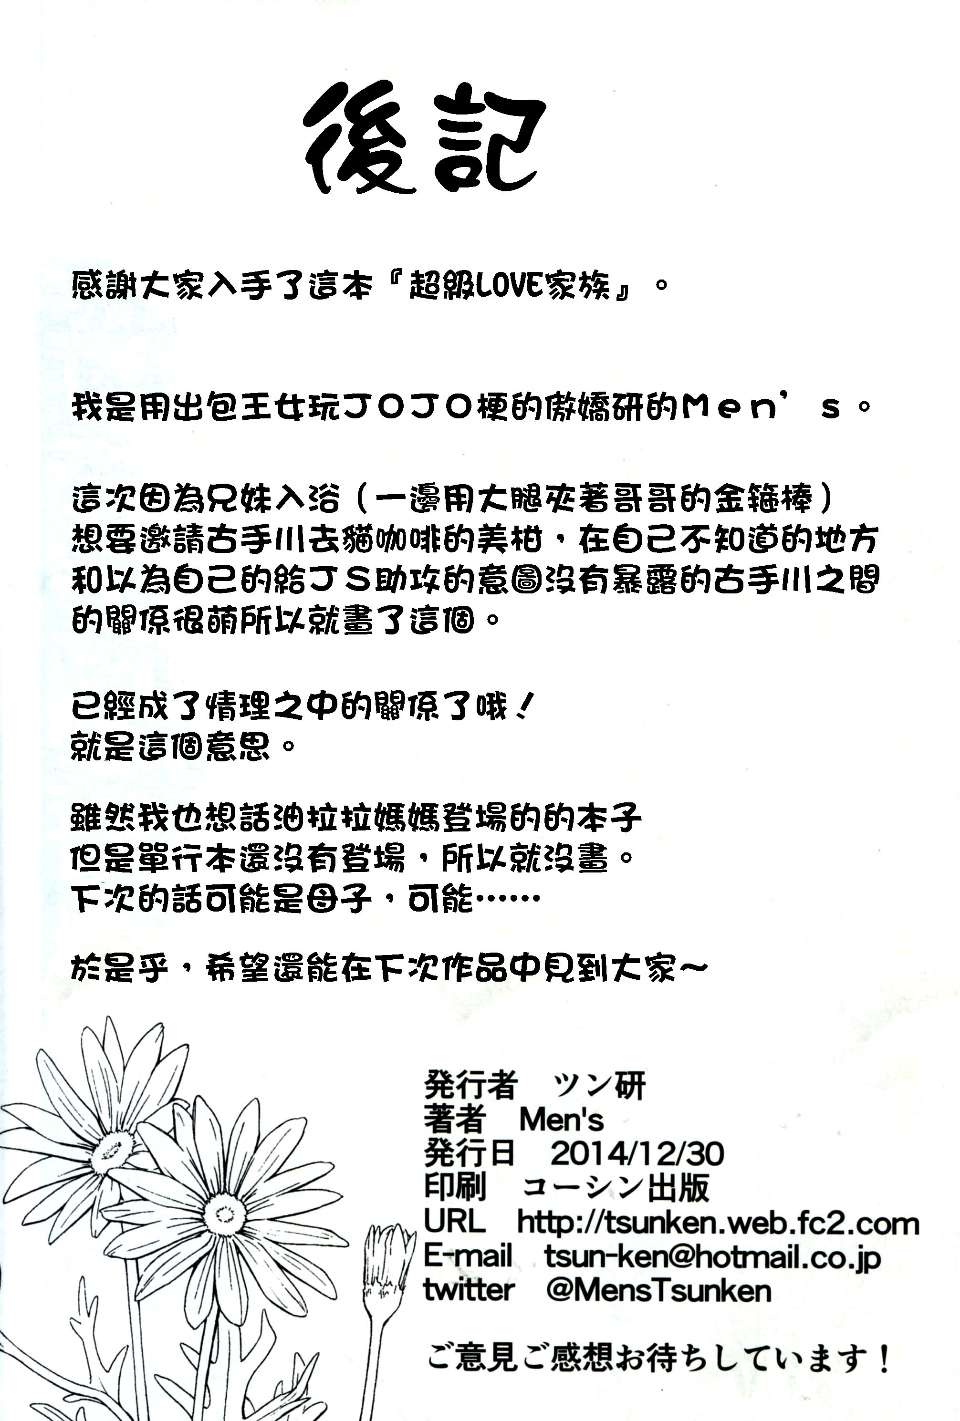 後記
感謝大家入手了這本『超級LOVE家族』。
我是用出包王女玩JOJO梗的傲嬌研的Men's。
這次因為兄妹入浴（一邊用大腿夾著哥哥的金箍棒）
想要邀請古手川去貓咖啡的美柑，在自己不知道的地方
和以為自己的給JS助攻的意圖沒有暴露的古手川之間
的關係很萌所以就畫了這個。
已經成了情理之中的關係了哦！
就是這個意思。
雖然我也想話油拉拉媽媽登場的的本子
但是單行本還沒有登場，所以就沒畫。
下次的話可能是母子，可能……
於是乎，希望還能在下次作品中見到大家～
発行者　ツン研
著者　Men's
発行日　2014/12/30
印刷　コーシン出版
URL　http://tsunken.web.fc2.com
E-mail　tsun-ken@hotmail.co.jp
twitter　@MensTsunken
ご意見ご感想お待ちしています！